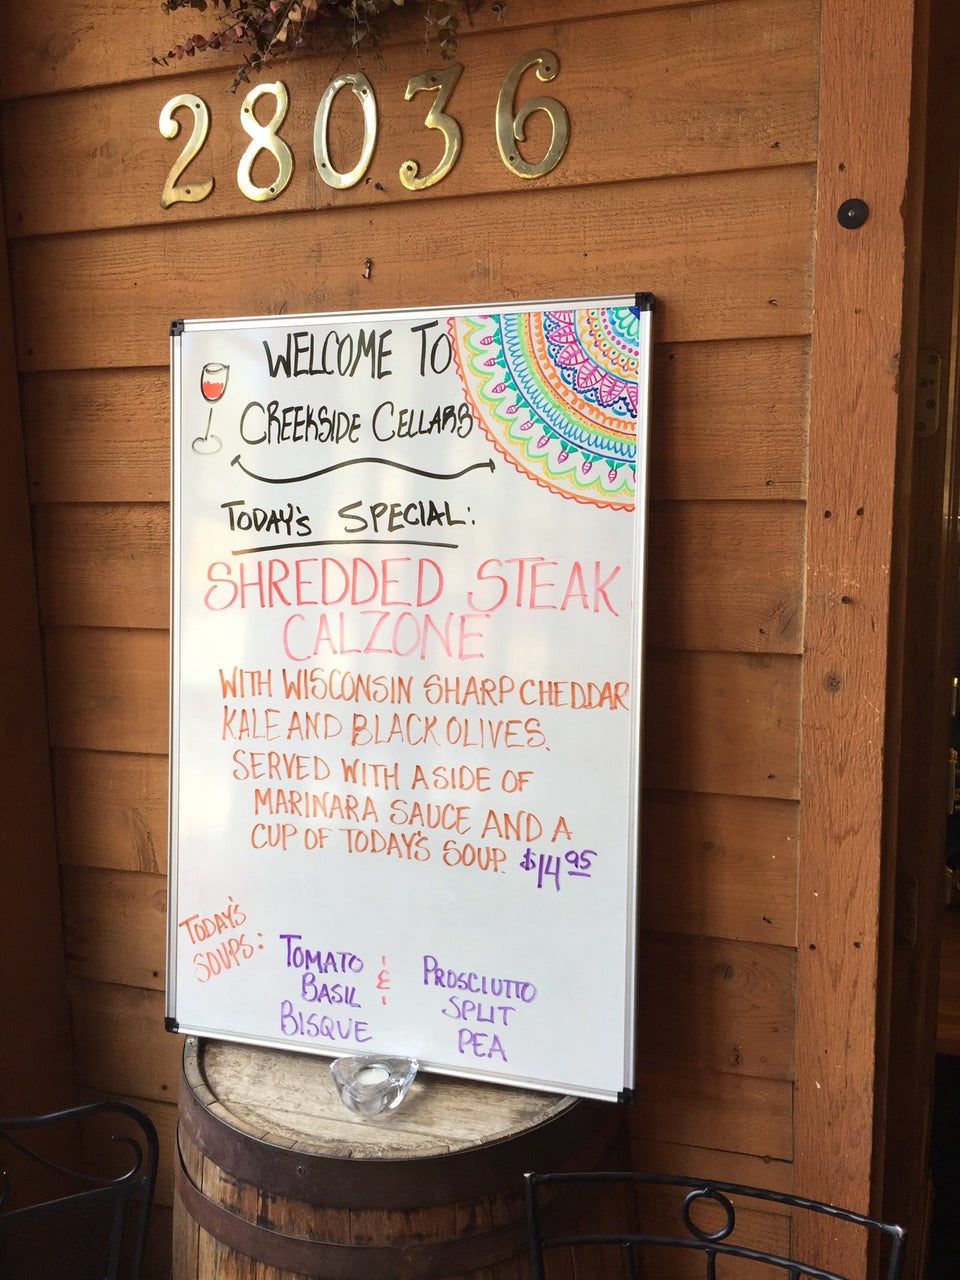 28036
WELCOME TO
CREEKSIDE CELLARS
TODAY'S SPECIAL:
SHREDDED STEAK
CALZONE
WITH WISCONSIN SHARP CHEDDAR
KALE AND BLACK OLIVES.
SERVED WITH A SIDE OF
MARINARA SAUCE AND A
CUP OF TODAY'S SOUP. $14.95
TODAY'S
SOUPS:
TOMATO
BASIL
BISQUE
&
PROSCIUTTO
SPLIT
PEA